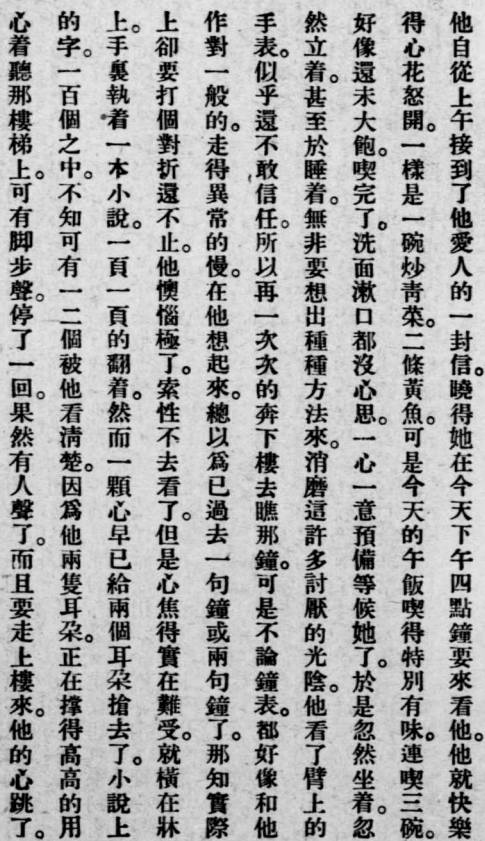 他自從上午接到了他愛人的一封信。曉得她在今天下午四點鐘要來看他。他就快樂
得心花怒開。一樣是一碗炒青菜。二條黃魚。可是今天的午飯喫得特別有味。連喫三碗。
好像還未大飽。喫完了。洗面漱口都沒心思。一心一意預備等候她了。於是忽然坐着。忽
然立着。甚至於睡着。無非要想出種種方法來。消磨這許多討厭的光陰。他看了臂上的
手表。似乎還不敢信任。所以再一次次的奔下樓去瞧那鐘。可是不論鐘表。都好像和他
作對一般的。走得異常的慢。在他想起來。總以爲已過去一句鐘或兩句鐘了。那知實際
上卻要打個對折還不止。他懊惱極了。索性不去看了。但是心焦得實在難受。就橫在牀
上。手裏執着一本小說。一頁一頁的翻着。然而一顆心早已給兩個耳朶搶去了。小說上
的字。一百個之中。不知可有一二個被他看清楚。因爲他兩隻耳朶。正在撑得高高的用
心着聽那樓梯上。可有脚步聲。停了一回。果然有人聲了。而且要走上樓來。他的心跳了。